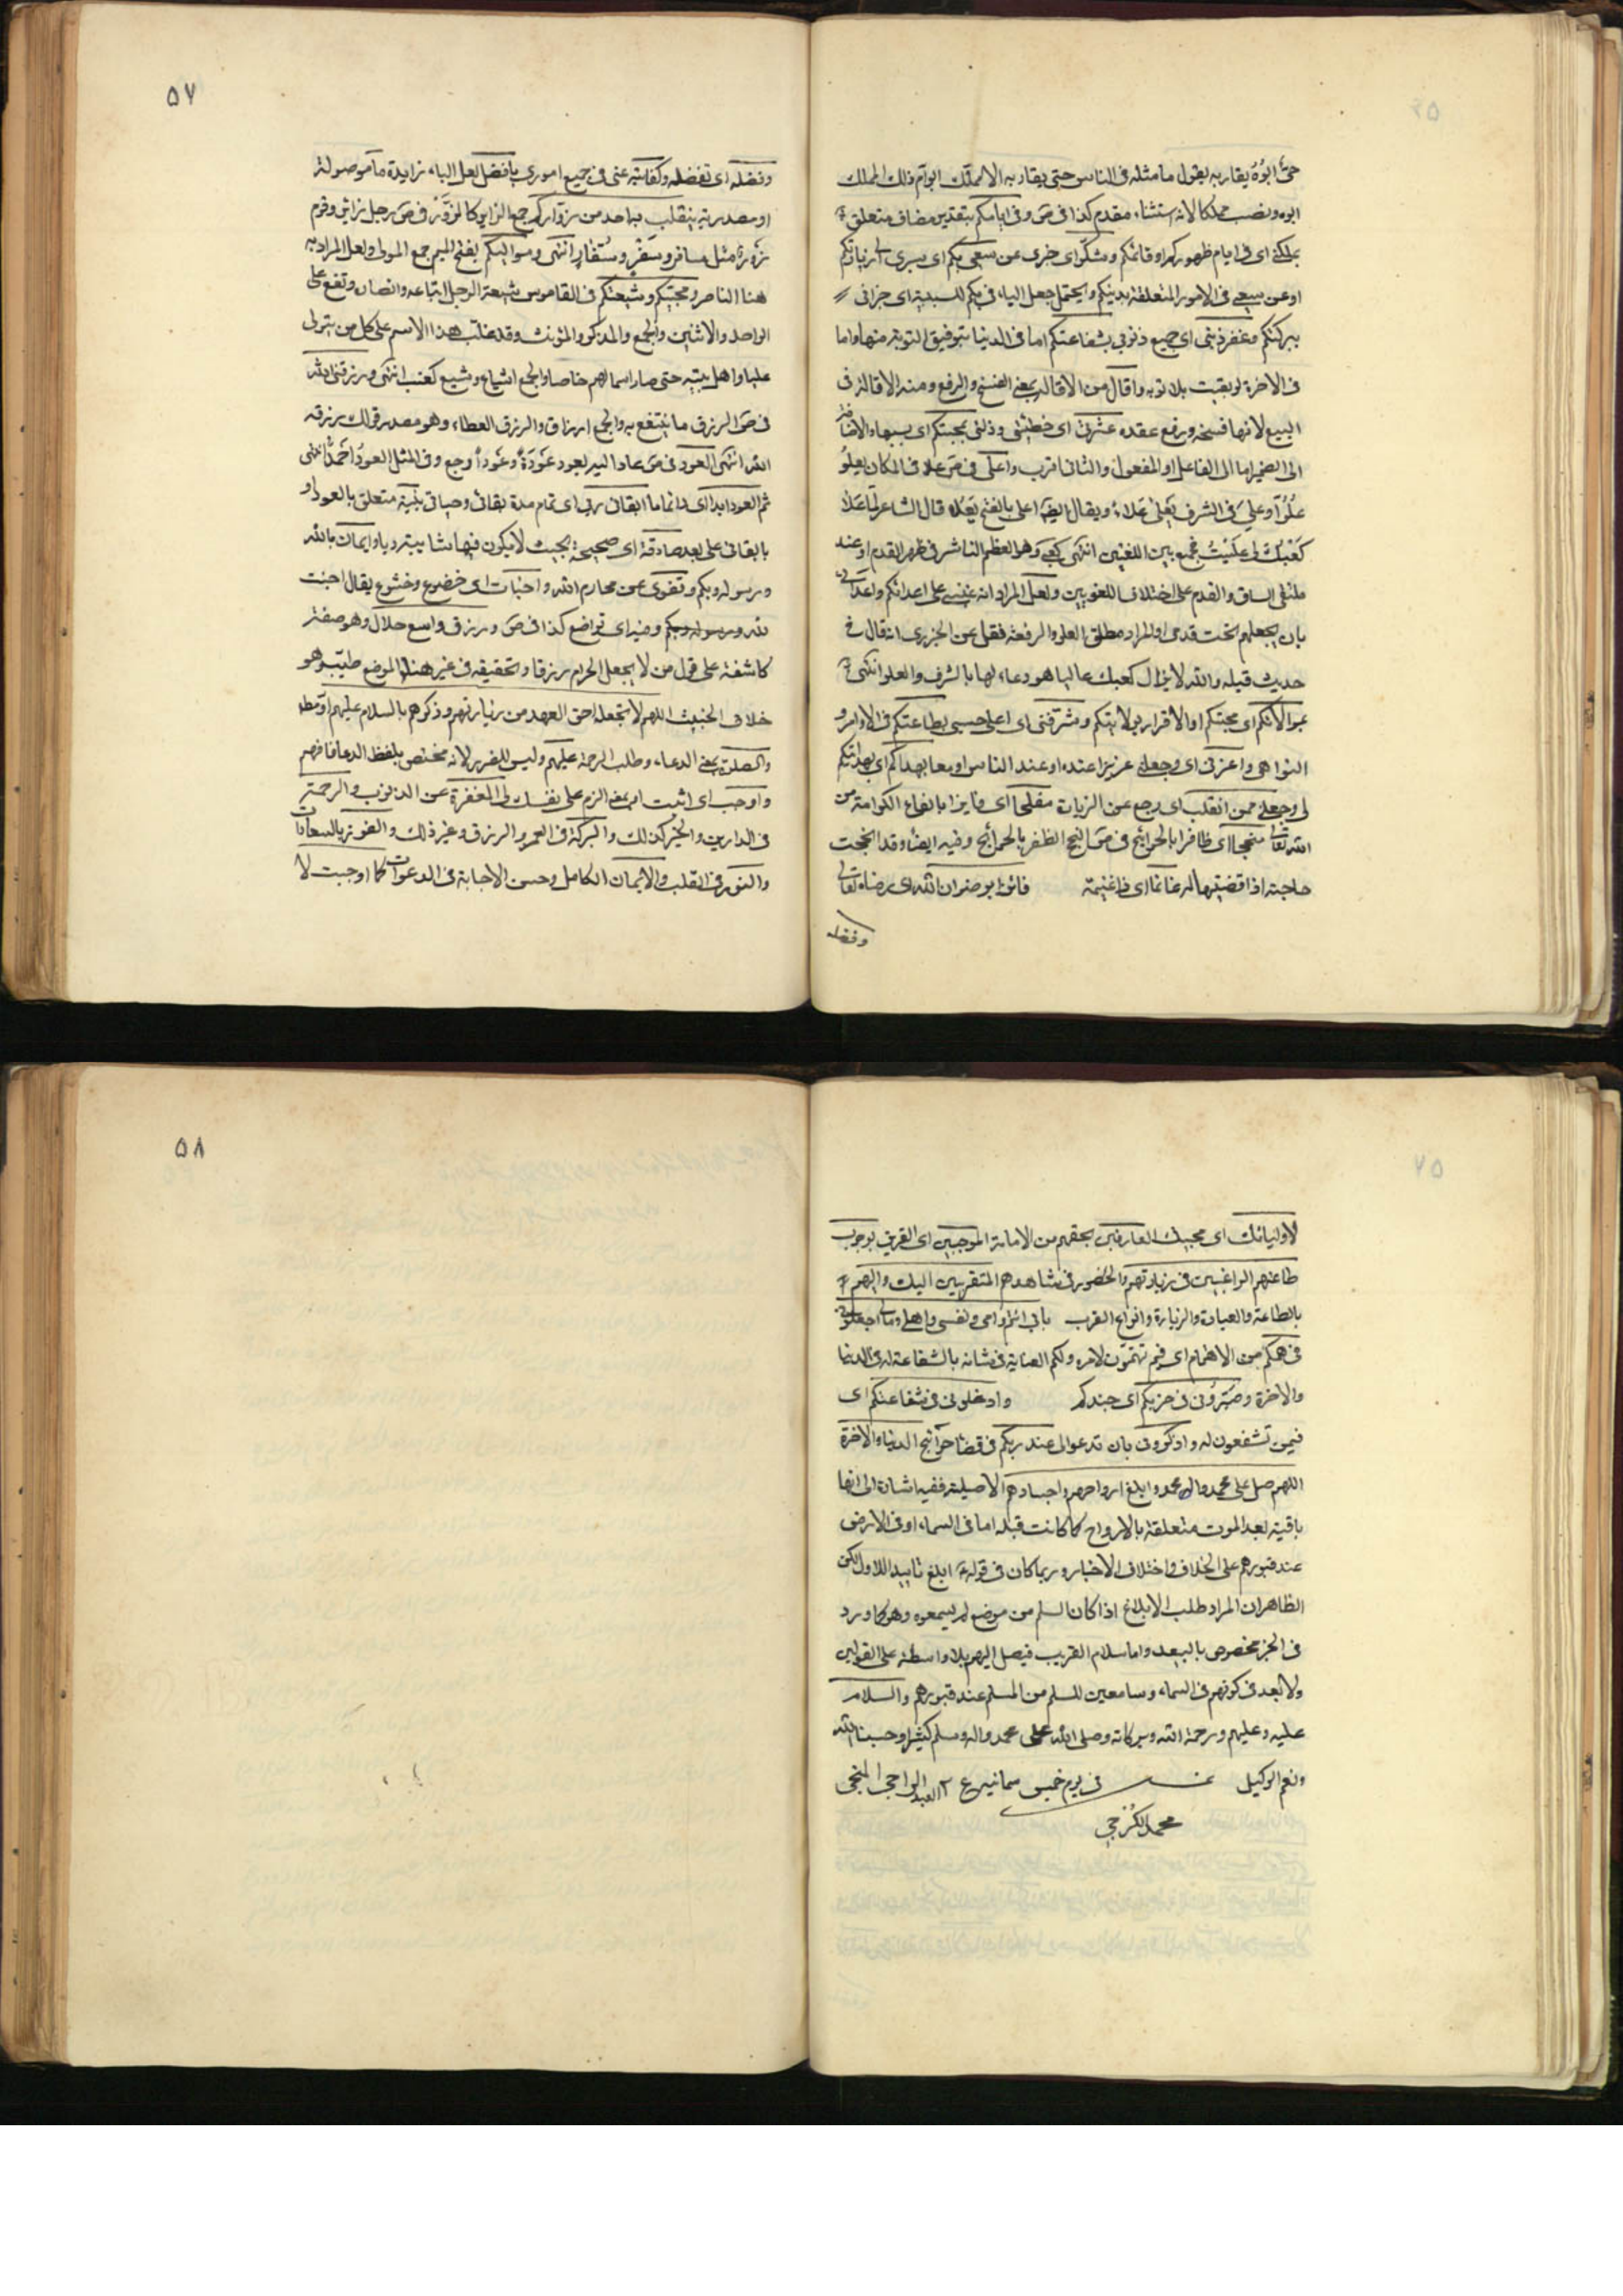 حىّ ابوُهُ يقاربه يقول ما مثله فى الناس حتى يقاربه الا مملّك ابوام ذلك الملك
ابوه ونصب مملكا لانه استثناء مقدم كذا فى ص وفى ايامكم بتقدير مضاف متعلق
بملكنى اى فى ايام ظهوركم او قائمكم وشكر اى جزى عن سعيى بكم اى سيرى الى زيارتكم
او عن سعيى فى الامور المتعلقة بدينكم ويحتمل جعل الباء فى بكم للسببية اى جزانى
ببركتكم وغفر ذنبى اى جميع ذنوبى بشفاعتكم اما فى الدنيا بتوفيق التوبة منها واما
فى الاخرة لو بقيت بلا توبة واقال من الاقالة بمعنى الفسخ والرفع ومنه الاقالة فى
البيع لانها فسخه ورفع عقده عثرتى اى خطيئتى وذلتى بمحبتكم اى بسببها والاضافة
الى الضمير اما الى الفاعل او المفعول والثانى اقرب واعلى فى ص علا فى المكان يعلوُ
عُلُوّاً وعلىَ فى الشرف يَعْلىٰ عَلاءً ويقال ايضا على بالفتح يَعْلا قال الشاعر لمّا عَلا
كَعْبُكَ لى عَلَيْتُ فجمع بين اللغتين انتهى كعبى وهو العظم الناشز فى ظهر القدم او عند
ملتقى الساق والقدم على اختلاف اللغويين ولعل المراد انه غلبنى على اعدائكم واعدائى
بان يجعلهم تحت قدمى او المراد مطلق العلو والرفعة فقل عن الجزرى انه قال فى
حديث قيلة والله لا يزال كعبك عاليا هو دعاء لها بالشرف والعلو انتهى
بموالاتكم اى محبتكم او الاقرار بولايتكم وشرفنى اى اعلى حسبى بطاعتكم فى الاوامر و
النواهى واعزنى اى وجعلنى عزيزا عنده او عند الناس او معا بهداكم اى بهدايتكم
لى وجعلنى ممن انقلب اى رجع عن الزيارة مفلحا اى فايزا بانواع الكرامة من
الله تعالى منجحا اى ظافرا بالحوائج فى ص النجح الظفر بالحوائج وفيه ايضا وقد انجحت
حاجته اذا قضيتها له غانما اى ذا غنيمة فائزا برضوان الله اى رضاه تعالى
وفضله
٥٧
وفضله اى تفضله وكفايته عنى فى جميع امورى بافضل لعل الباء زايدة ما موصولة
او مصدرية ينقلب به احد من زواركم جمع الزاير كالزُوّر فى ص رجل زائر وقوم
زَوْر مثل مسافر وسَفْر وسُفّار انتهى ومواليكم بفتح الميم جمع المولى ولعل المراد به
هنا الناصر ومحبيكم وشيعتكم فى القاموس شيعة الرجل اتباعه وانصاره وتقع على
الواحد والاثنين والجمع والمذكر والمؤنث وقد غلب هذا الاسم على كل من يتولى
عليا واهل بيته حتى صار اسما لهم خاصا والجمع اشياع وشيع كعنب انتهى ورزقنى الله
فى ص الرزق ما ينتفع به والجمع ارزاق والرزق العطاء وهو مصدر قولك رزقه
الله انتهى العود فى ص عاد اليه يعود عَوْدَةً وعَوْداً رجع وفى المثل العودُ احْمَدُ انتهى
ثم العود ابدا اى دائما ما ابقانى ربى اى تمام مدة بقائى وحياتى بنية متعلق بالعود او
بابقانى على بعد صادقة اى صحيحة بحيث لا يكون فيها شايبة رديا وايمان بالله
ورسوله وبكم وتقوى عن محارم الله واخبات اى خضوع وخشوع يقال اخبت
لله ورسوله وبكم وفيه اى تواضع كذا فى ص ورزق واسع حلال وهو صفة
كاشفة على قول من لا يجعل الحرام رزقا وتحقيقه فى غير هذا الموضع طيب وهو
خلاف الخبيث اللهم لا تجعله اخر العهد من زيارتهم وذكرهم بالسلام عليهم او مطلقا
والصلوة بمعنى الدعاء وطلب الرحمة عليهم وليس للضرر لانه مختص بلفظ الدعا فافهم
واوجب اى اثبت او بمعنى الزم على نفسك لى المغفرة عن الذنوب والرحمة
فى الدارين والخير كذلك والبركة فى العمر والرزق وغير ذلك والفوز بالسعادات
والنور فى القلب والايمان الكامل وحسن الاجابة فى الدعوات كما اوجبت لا
لاوليائك اى محبيك العارفين بحقهم من الامامة الموجبين اى المقرين بوجوب
طاعتهم الراغبين فى زيارتهم والحضور فى مشاهدهم المتقربين اليك واليهم
بالطاعة والعبادة والزيارة وانواع القرب بابى انتم وامى ونفسى واهلى ومالى اجعلونى
فى همكم من الاهتمام اى فيمن تهتمون لامره ولكم العناية فى شانه بالشفاعة له فى الدنيا
والاخرة وصيرونى فى حزبكم اى جندكم وادخلونى فى شفاعتكم اى
فيمن تشفعون له واذكرونى بان تدعوا لى عند ربكم فى قضاء حوائج الدنيا والاخرة
اللهم صل على محمد وال محمد وابلغ ارواحهم واجسادهم الاصيلة ففيه اشارة الى انها
باقية بعد الموت متعلقة بالارواح كما كانت قبله اما فى السماء او فى الارض
عند قبورهم على الخلاف واختلاف الاخبار وربما كان فى قوله ابلغ تاييد للاول لكن
الظاهر ان المراد طلب الابلاغ اذا كان المسلم من موضع لم يسمعوه وهو كما ورد
فى الخبر مخصوص بالبعيد واما سلام القريب فيصل اليهم بلا واسطة على القولين
ولا بعد فى كونهم فى السماء وسامعين للسلم من المسلم عند قبورهم والسلام
عليه وعليهم ورحمة الله وبركاته وصلى الله على محمد واله وسلم كثيرا وحسبنا الله
ونعم الوكيل فى يوم خميس العبد الراجى المنجى
محمد الكرجى
٥٨